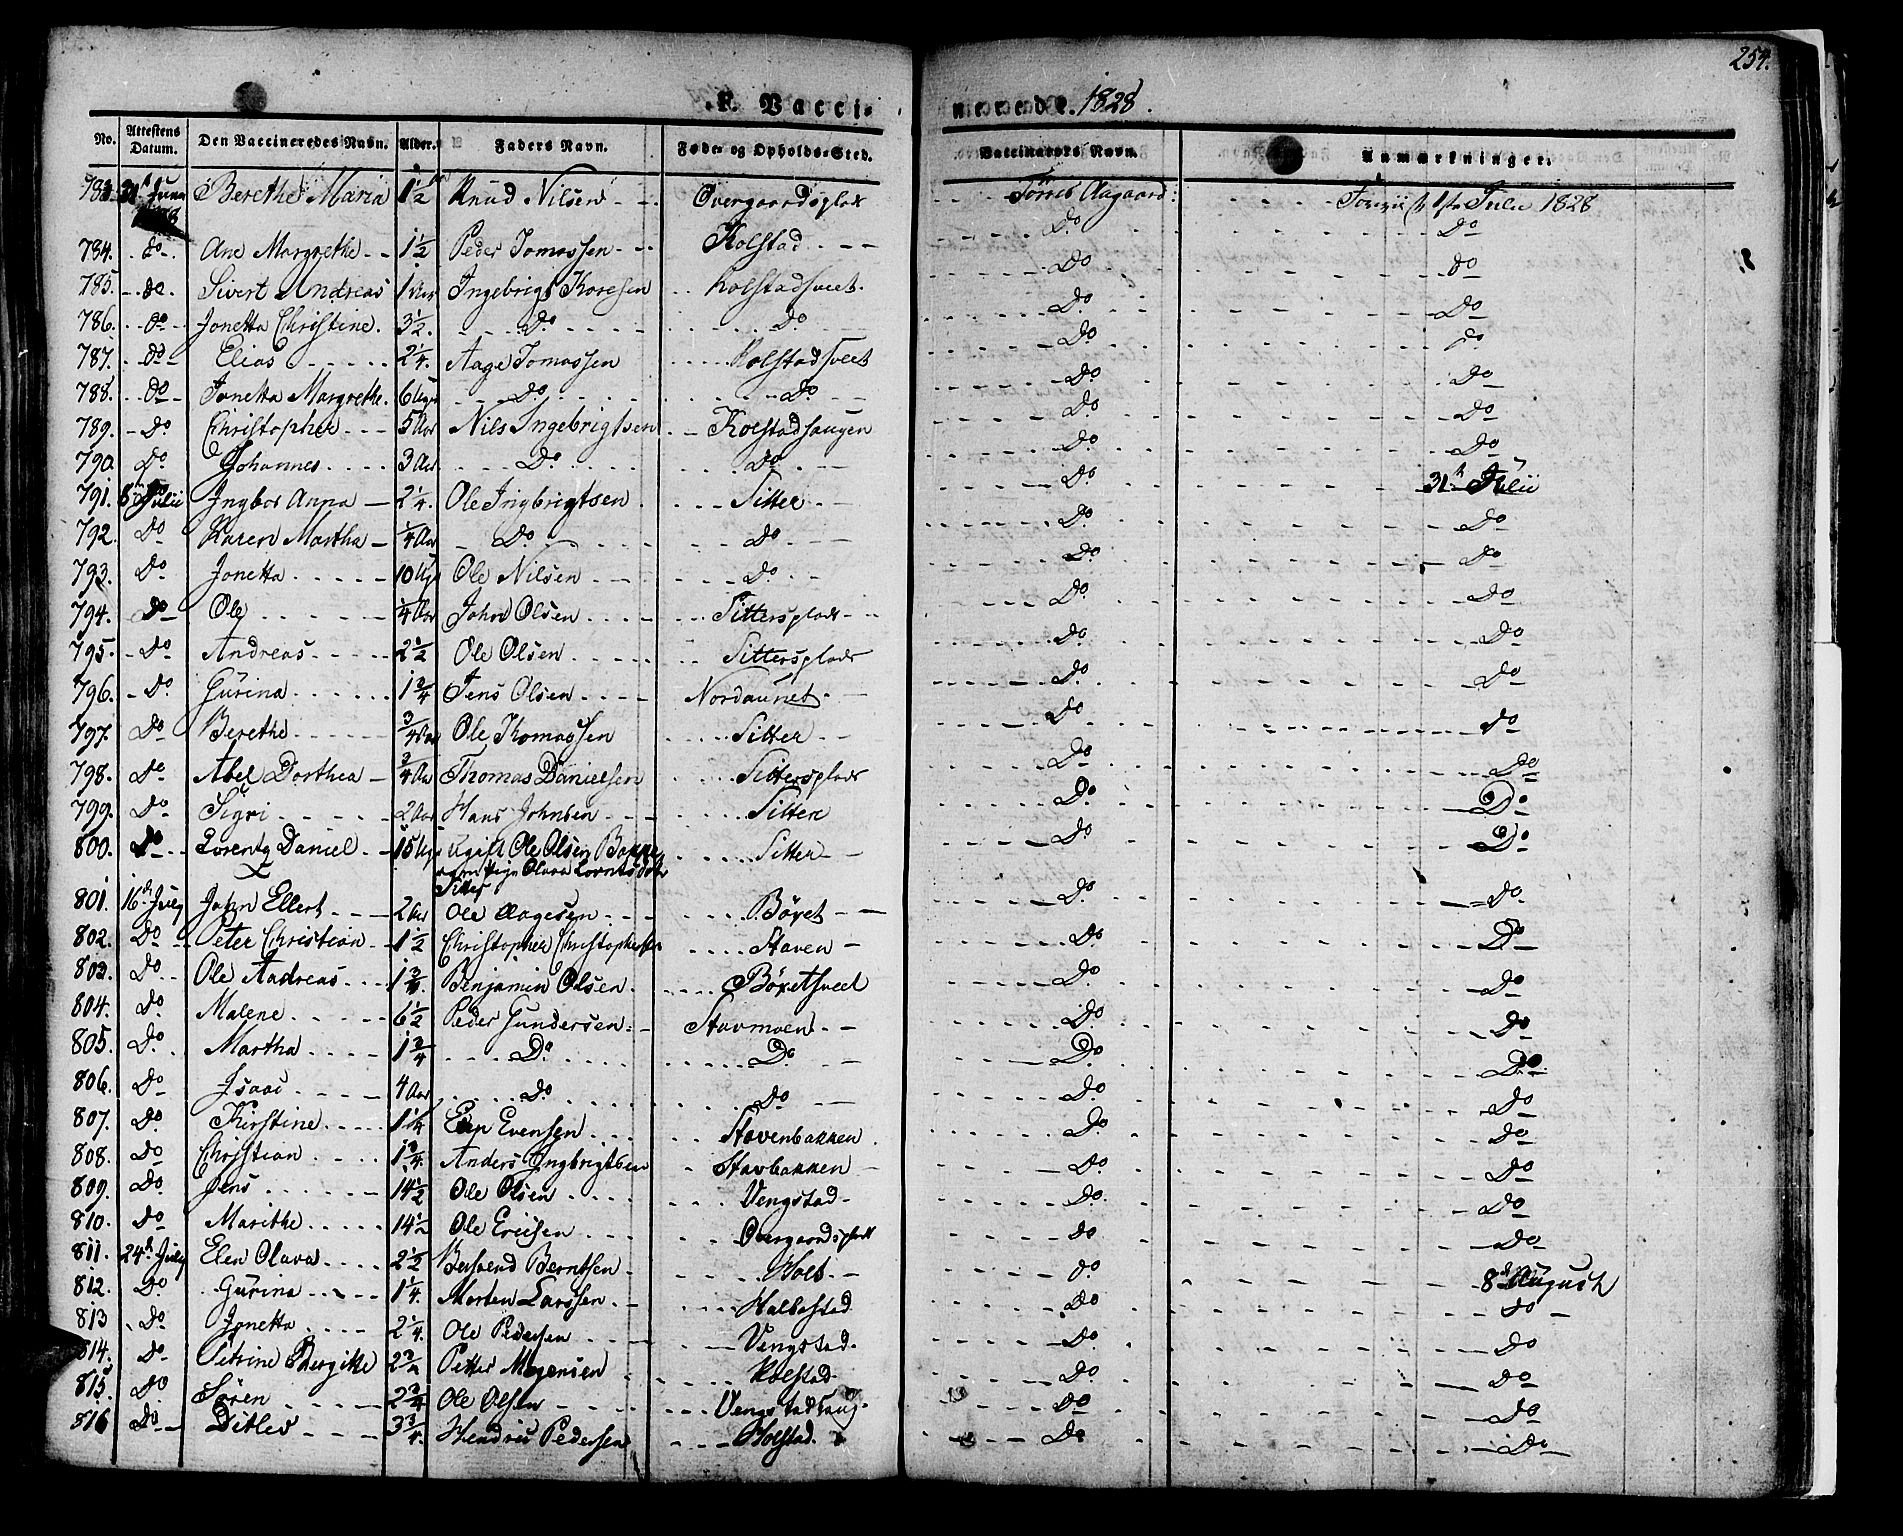 254.
F. Vacci- nerede. 1828.
No. Attestens Datum. Den Vaccineredes Navn. Alder. Faders Navn. Føde- og Opholds-Sted. Vaccinators Navn. Anmærkninger.
783. 21 Juni 1828 Berethe Maria 1 1/2 Knud Nilsen Overgaardsplads Torris Aagaard 1ste Julii 1828
784. do Ane Margrethe 1 1/2 Peder Tomassen Kolstad Do Do
785. do. Sivert Andreas 1 Aar Ingebrigt Koresen Kolstadsveet Do do
786. Do Jonetta Christine. 3 1/2 Do Do Do Do
787. Do Elias 2 1/4. Aage Tomassen Kolstadsveet Do do
788. Do Jonetta Margrethe. 6 Uger Do Do Do Do
789. Do Christopher 5 Aar Nils Ingebrigtsen Kolstadhaugen Do Do
790. Do Johannes 3 Aar Do Do Do Do
791. 8de Julii Ingbor Anna 2 1/4. Ole Ingbrigtsen Sitter Do 31te Julii
792. Do Karen Martha 1/4 Aar Do Do Do Do
793. Do Jonetta 10 Uger Ole Nilsen Do Do Do
794. Do Ole 1/4 Aar John Olsen Sittersplads Do Do
795. Do Andreas 2 1/2 Ole Olsen Sittersplads Do Do
796. Do Gurina 1 3/4 Jens Olsen Nordaunet Do Do
797. Do Berethe 3/4 Aar Ole Thomassen Sitter Do do
798. Do Abel Dorthea 3/4 Aar Thomas Danielsen Sittersplads Do Do
799. Do Sigri 2 Aar Hans Johnsen Sitter Do Do
800. Do Lorentz Daniel 15 Uger Ugift Ole Olsen Bakke og Pige Olava Lorntsdatter Sitter Sitter Do Do
801. 16de July John Ellert 2 Aar Ole Aagesen Böxet Do Do
802. Do Peter Christian 1 1/2 Christopher Christophersen Staven Do Do
803. Do Ole Andreas 1 3/4. Benjamin Olsen Böxetsveet Do Do
804. Do Malene 6 1/2 Peder Gundersen Stavmoen Do Do
805. Do Martha 1 3/4 Do Do Do Do
806. Do Isaac 4 Aar Do Do Do Do
807. Do Kirstine 1 1/4 Evensen Stavenbakken Do Do
808. Do Christian 1 3/4. Anders Ingbrigtsen Stavbakken Do Do
809. Do Jens 14 1/2 Ole Olsen Vengstad Do Do
810. Do Marithe 14 1/2 Ole Ericsen Overgaardsplads Do Do
811. 24de July Elen Olava 2 1/2 Berntsen Holt Do 8de August
812. Do Gurina 1 1/4. Morten Larssen Halbostad Do do
813 Do Jonetta 2 1/4. Ole Pedersen Vengstad Do Do
814. Do Petrine Bergitte 2 3/4 Petter Mogensen Kolstad Do Do
815. Do Sören 2 3/4 Ole Olsen Vengstadhaug Do Do
816 Do Ditlev 3 3/4. Hendric Pedersen Kolstad Do Do